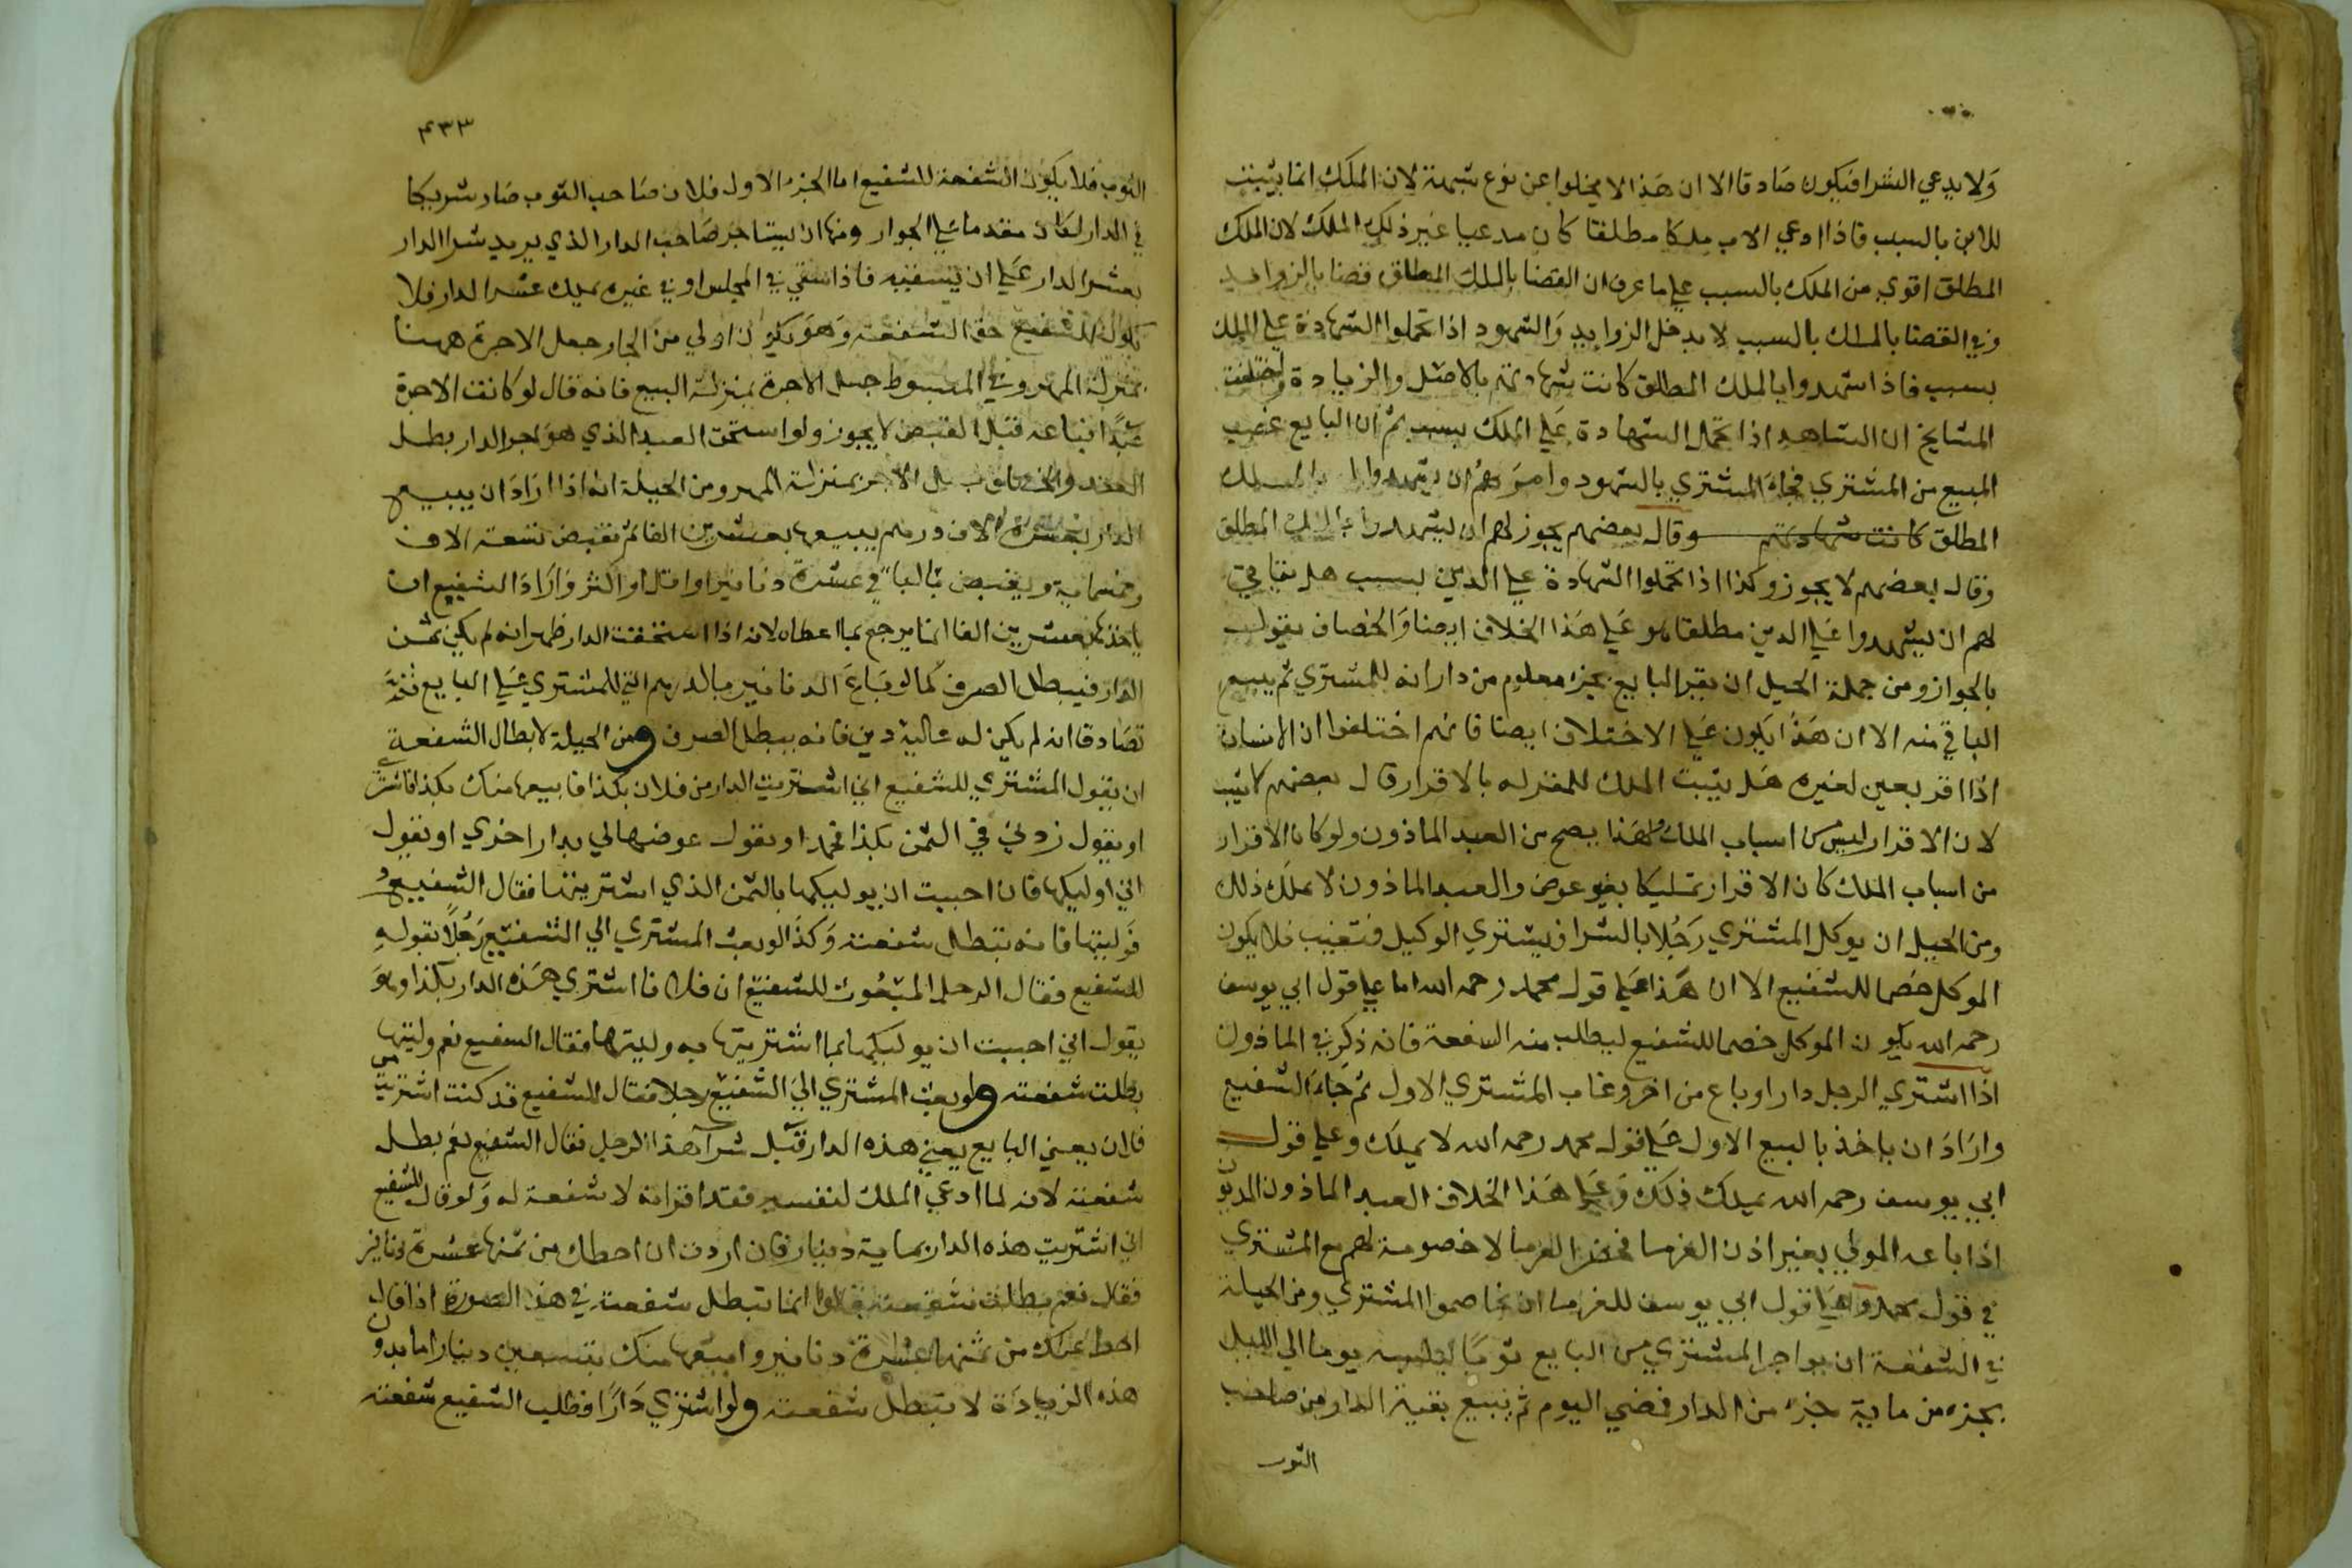 ولا يدعي الشرا فيكون صادقا الا ان هذا لا يخلوا عن نوع شبهة لان الملك انما يثبت
للابن بالسبب فاذا ادعي الاب ملكا مطلقا كان مدعيا غير ذلك الملك لان الملك
المطلق اقوي من الملك بالسبب علي ما عرف ان القضا بالملك المطلق قضا بالزوايد
وفي القضا بالملك بالسبب لا يدخل الزوايد والشهود اذا تحملوا الشهادة علي الملك
بسبب فاذا شهدوا بالملك المطلق كانت شهادتهم بالاصل والزيادة واختلفت
المشايخ ان الشاهد اذا تحمل الشهادة علي الملك بسبب ثم ان البايع غصب
المبيع من المشتري فجاء المشتري بالشهود وامرهم ان يشهدوا له بالملك
المطلق كانت شهادتهم وقال بعضهم يجوز لهم ان يشهدوا بالملك المطلق
وقال بعضهم لا يجوز وكذا اذا تحملوا الشهادة علي الدين بسبب هل يقا في
لهم ان يشهدوا علي الدين مطلقا هو علي هذا الخلاف ايضا والخصاف يقول
بالجواز ومن جملة الحيل ان يقر البايع بجزء معلوم من دار انه للمشتري ثم يبيع
الباقي منه الا ان هذا يكون علي الاختلاف ايضا فانهم اختلفوا ان الانسان
اذا اقر بعين لغيره هل يثبت الملك للمقر له بالاقرار قال بعضهم لا يثبت
لان الاقرار ليس من اسباب الملك ولهذا يصح من العبد الماذون ولو كان الاقرار
من اسباب الملك كان الاقرار تمليكا بغير عوض والعبد الماذون لا يملك ذلك
ومن الحيل ان يوكل المشتري رجلا بالشرا فيشتري الوكيل فتغيب فلا يكون
الموكل خصما للشفيع الا ان هذا علي قول محمد رحمه الله اما علي قول ابي يوسف
رحمه الله يكون الموكل خصما للشفيع ليطلب منه الشفعة فانه ذكر في الماذون
اذا اشتري الرجل دارا وباع من اخر وغاب المشتري الاول ثم جاء الشفيع
واراد ان ياخذ بالبيع الاول علي قول محمد رحمه الله لا يملك وعلي قول
ابي يوسف رحمه الله يملك ذلك وعلي هذا الخلاف العبد الماذون المديون
اذا باعه المولي بغير اذن الغرما فحضر الغرما لا خصومة لهم مع المشتري
في قول محمد وعلي قول ابي يوسف للغرما ان يخاصموا المشتري ومن الحيلة
في الشفعة ان يواجر المشتري من البايع ثوبا ليلبسه يوما الي الليل
بجزء من ماية جزء من الدار فمضي اليوم ثم يبيع بقية الدار من صاحب
الثوب
٤٣٣
الثوب فلا يكون الشفعة للشفيع اما الجزء الاول فلان صاحب الثوب صار شريكا
في الدار لكان مقدما علي الجوار ومنها ان يستاجر صاحب الدار الذي يريد شرا الدار
بعشر الدار علي ان يسقيه فاذا سقي في المجلس او في غيره يملك عشر الدار فلا
يكون للشفيع حق الشفعة وهو يكون اولي من الجار جعل الاجرة ههنا
بمنزلة المهر وفي المبسوط جعل الاجرة بمنزلة البيع فانه قال لو كانت الاجرة
عبدا فباعه قبل القبض لا يجوز ولو استحق العبد الذي هو اجر الدار بطل
العقد والخصاف جعل الاجر بمنزلة المهر ومن الحيلة انه اذا اراد ان يبيع
الدار بعشرة الاف درهم يبيعها بعشرين الفا ثم يقبض تسعة الاف
وخمسماية ويقبض بالباقي عشرة دنانير او اقل او اكثر واراد الشفيع ان
ياخذها بعشرين الفا انما يرجع بما اعطاه لانه اذا استحقت الدار ظهر انه لم يكن ثمن
الدار فيبطل الصرف كما لو باع الدنانير بالدراهم التي للمشتري علي البايع ثم
تصادقا انه لم يكن له عاليه دين فانه يبطل الصرف ومن الحيلة لابطال الشفعة
ان يقول المشتري للشفيع اني اشتريت الدار من فلان بكذا فابيعها منك بكذا فاشتري
او يقول زدني في الثمن بكذا او يقول عوضها لي بدار اخري او يقول
اني اوليكها فان احببت ان يوليكها بالثمن الذي اشتريتها فقال الشفيع
وليتها فانه تبطل شفعته وكذا لو بعث المشتري الي الشفيع رجلا بقوله
للشفيع فقال الرجل المبعوث للشفيع ان فلانا اشتري هذه الدار بكذا وهو
يقول اني احببت ان يوليكها بما اشتريتها به وليتها فقال الشفيع نعم وليتها
بطلت شفعته ولو بعث المشتري الي الشفيع رجلا فقال للشفيع قد كنت اشتريت من
فلان يعني البايع يعني هذه الدار قبل شرا هذا الرجل فقال الشفيع نعم بطل
شفعته لانه لما ادعي الملك لنفسه فقد اقر انه لا شفعة له ولو قال للشفيع
اني اشتريت هذه الدار بماية دينار فان اردت ان احطك من ثمنها عشرة دنانير
فقال نعم بطلت شفعته قالوا انما تبطل شفعته في هذه الصورة اذا قال
احط عنك من ثمنها عشرة دنانير وابيعها منك بتسعين دينارا اما بدون
هذه الزيادة لا تبطل شفعته ولو اشتري دارا فطلب الشفيع شفعته